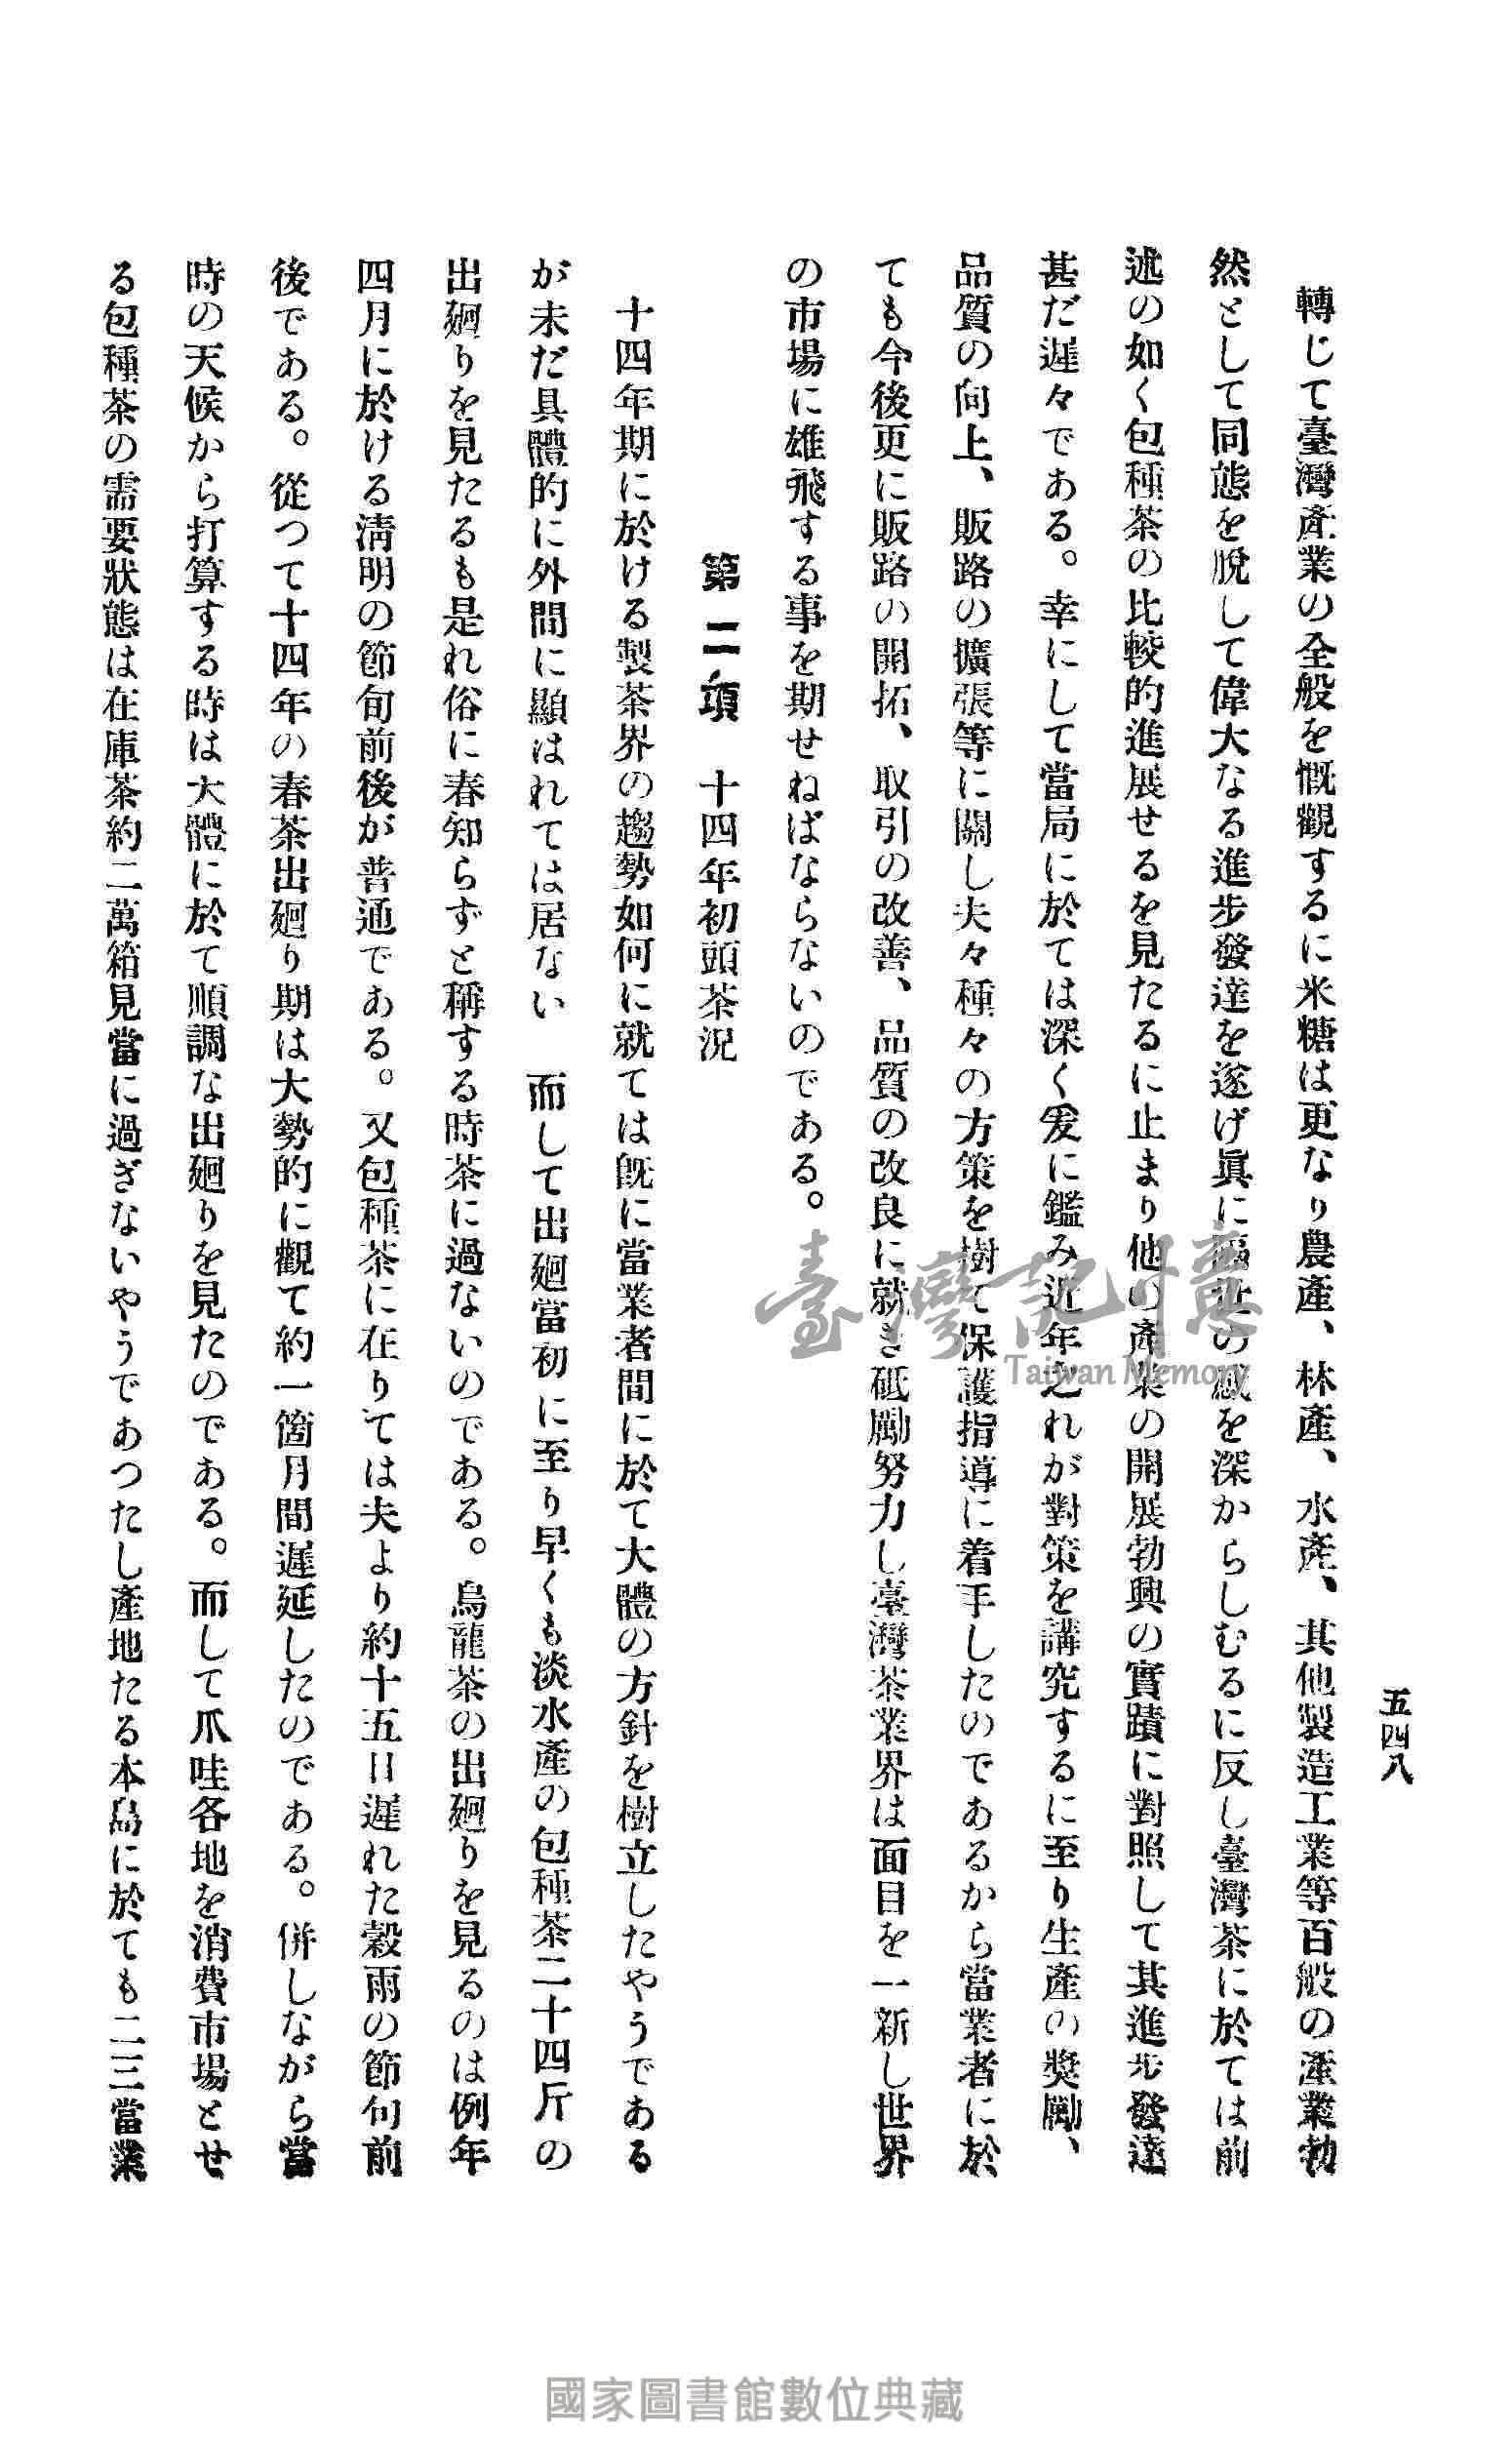 五四八
轉じて臺灣產業の全般を慨觀するに米糖は更なり農產、林產、水產、其他製造工業等百般の產業勃
然として同態を脫して偉大なる進步發達を遂げ眞に隔世の感を深からしむるに反し臺灣茶に於ては前
述の如く包種茶の比較的進展せるを見たるに止まり他の產業の開展勃興の實蹟に對照して其進步發達
甚だ遲々である。幸にして當局に於ては深く爰に鑑み近年之れが對策を講究するに至り生產の獎勵、
品質の向上、販路の擴張等に關し夫々種々の方策を樹て保護指導に着手したのであるから當業者に於
ても今後更に販路の開拓、取引の改善、品質の改良に就き砥勵努力し臺灣茶業界は面目を一新し世界
の市場に雄飛する事を期せねばならないのである。
第二項　十四年初頭茶況
十四年期に於ける製茶界の趨勢如何に就ては旣に當業者間に於て大體の方針を樹立したやうである
が未だ具體的に外間に顯はれては居ない　而して出廻當初に至り早くも淡水產の包種茶二十四斤の
出廻りを見たるも是れ俗に春知らずと稱する時茶に過ないのである。烏龍茶の出廻りを見るのは例年
四月に於ける淸明の節旬前後が普通である。又包種茶に在りては夫より約十五日遲れた穀雨の節句前
後である。從つて十四年の春茶出廻り期は大勢的に觀て約一箇月間遲延したのである。併しながら當
時の天候から打算する時は大體に於て順調な出廻りを見たのである。而して爪哇各地を消費市場とせ
る包種茶の需要狀態は在庫茶約二萬箱見當に過ぎないやうであつたし產地たる本島に於ても二三當業
臺灣記憶
Taiwan Memory
國家圖書館數位典藏